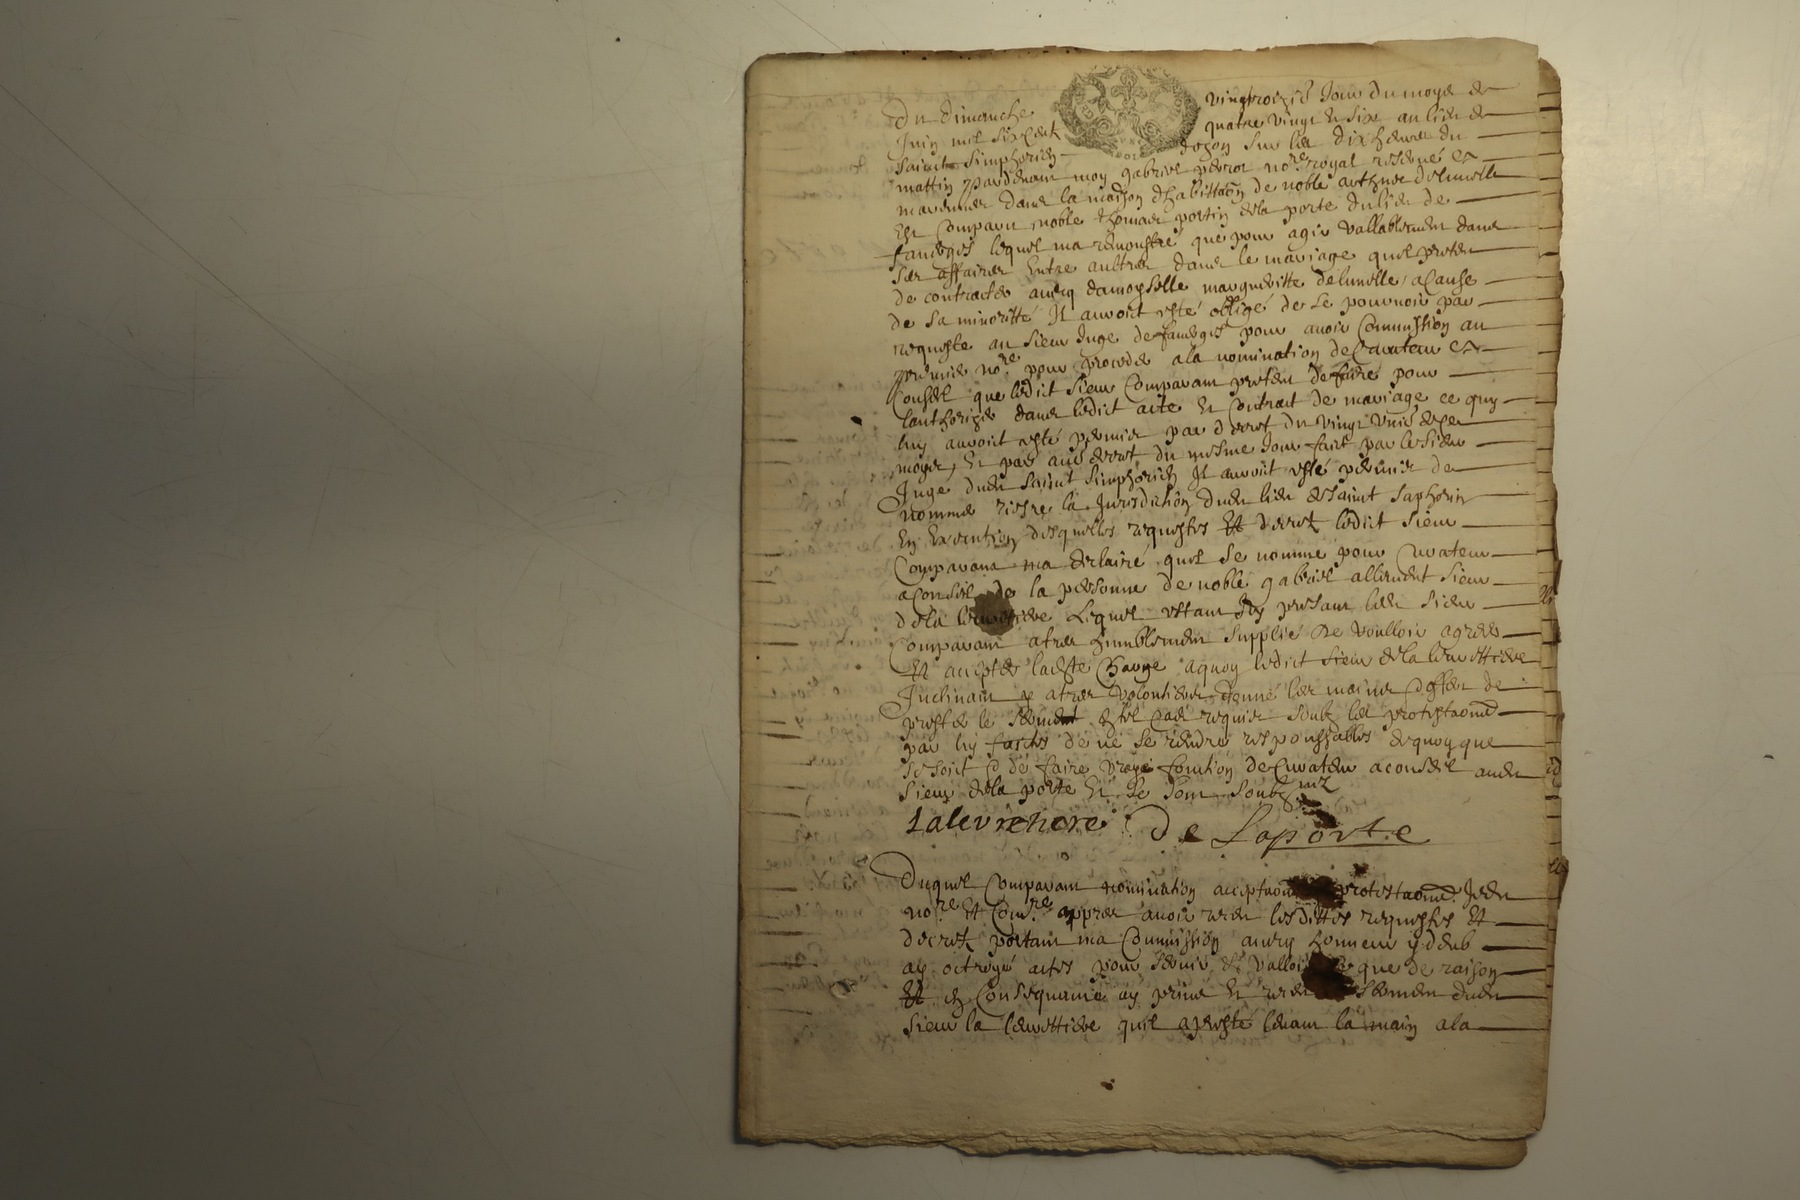 Du dimanche vingtroizie Jour du moys de
Juin mil six centz quatre vingt et six au lieu de
saint simphorien dozon sur les dix heures du
mattin pardevant moy gabriel no.re royal reservé et
dans la maison dhabittaon de noble arthus
Est Comparu noble thomas portin dela porte du lieu de
faverges lequel ma remonstré que pour agir vallablement dans
ses affaires Entre aultres dans le mariage quil preten
de contracter avecq damoyselle margueritte delunelle a Cause
de sa minoritté Il auroit esté obligé de se pourvoir par
requeste au sieur Juge de faverges pour avoir Commission au
premier no.re pour proceder a la nomination de Curateur et
Conseil que ledict sieur Comparant pretend de faire pour
lauthorizer dans ledict acte et Contract de mariage ce quy
luy auroit esté permis par decret du vingt unie de ce
moys, Et par aue decret du mesme Jour faict par le sieur
Juge dud saint simphorien Il auroit esté permis de
nommer riere la Jurisdiction dud lieu de saint saphorin
En Execution desquelles requestes Et decretz ledict sieur
Comparant ma declairé quil se nomme pour Curateur
a Conseil de la personne de noble gabriel sieur
dela lequel estant Icy presant led sieur
Comparant a tres humblement supplié de voulloir agreer
Et accepter ladte Charge a quoy ledict sieur dela levrettiere
Inclinant a tres volontiers donné les mains offert de
prester le serment En tel Cas requis soubz les protestaons
par luy faictes de ne se rendre responsables de quoy que
se soit de faire vraye fonction de Curateur a conseil aud
sieur dela porte Et se sont soubz.nez
Lalevretiere De Laporte
Duquel Comparant nomination acceptaon protestaons Jed
no.re Et Com.re appres avoir veu lesdittes requestes Et
decretz portant ma Commission avecq honneur
ay octroyé actes pour servir Et valloir que de raison
Et En Consequance ay prins Et serment dud
sieur la levrettiere quil a presté levant la main a la